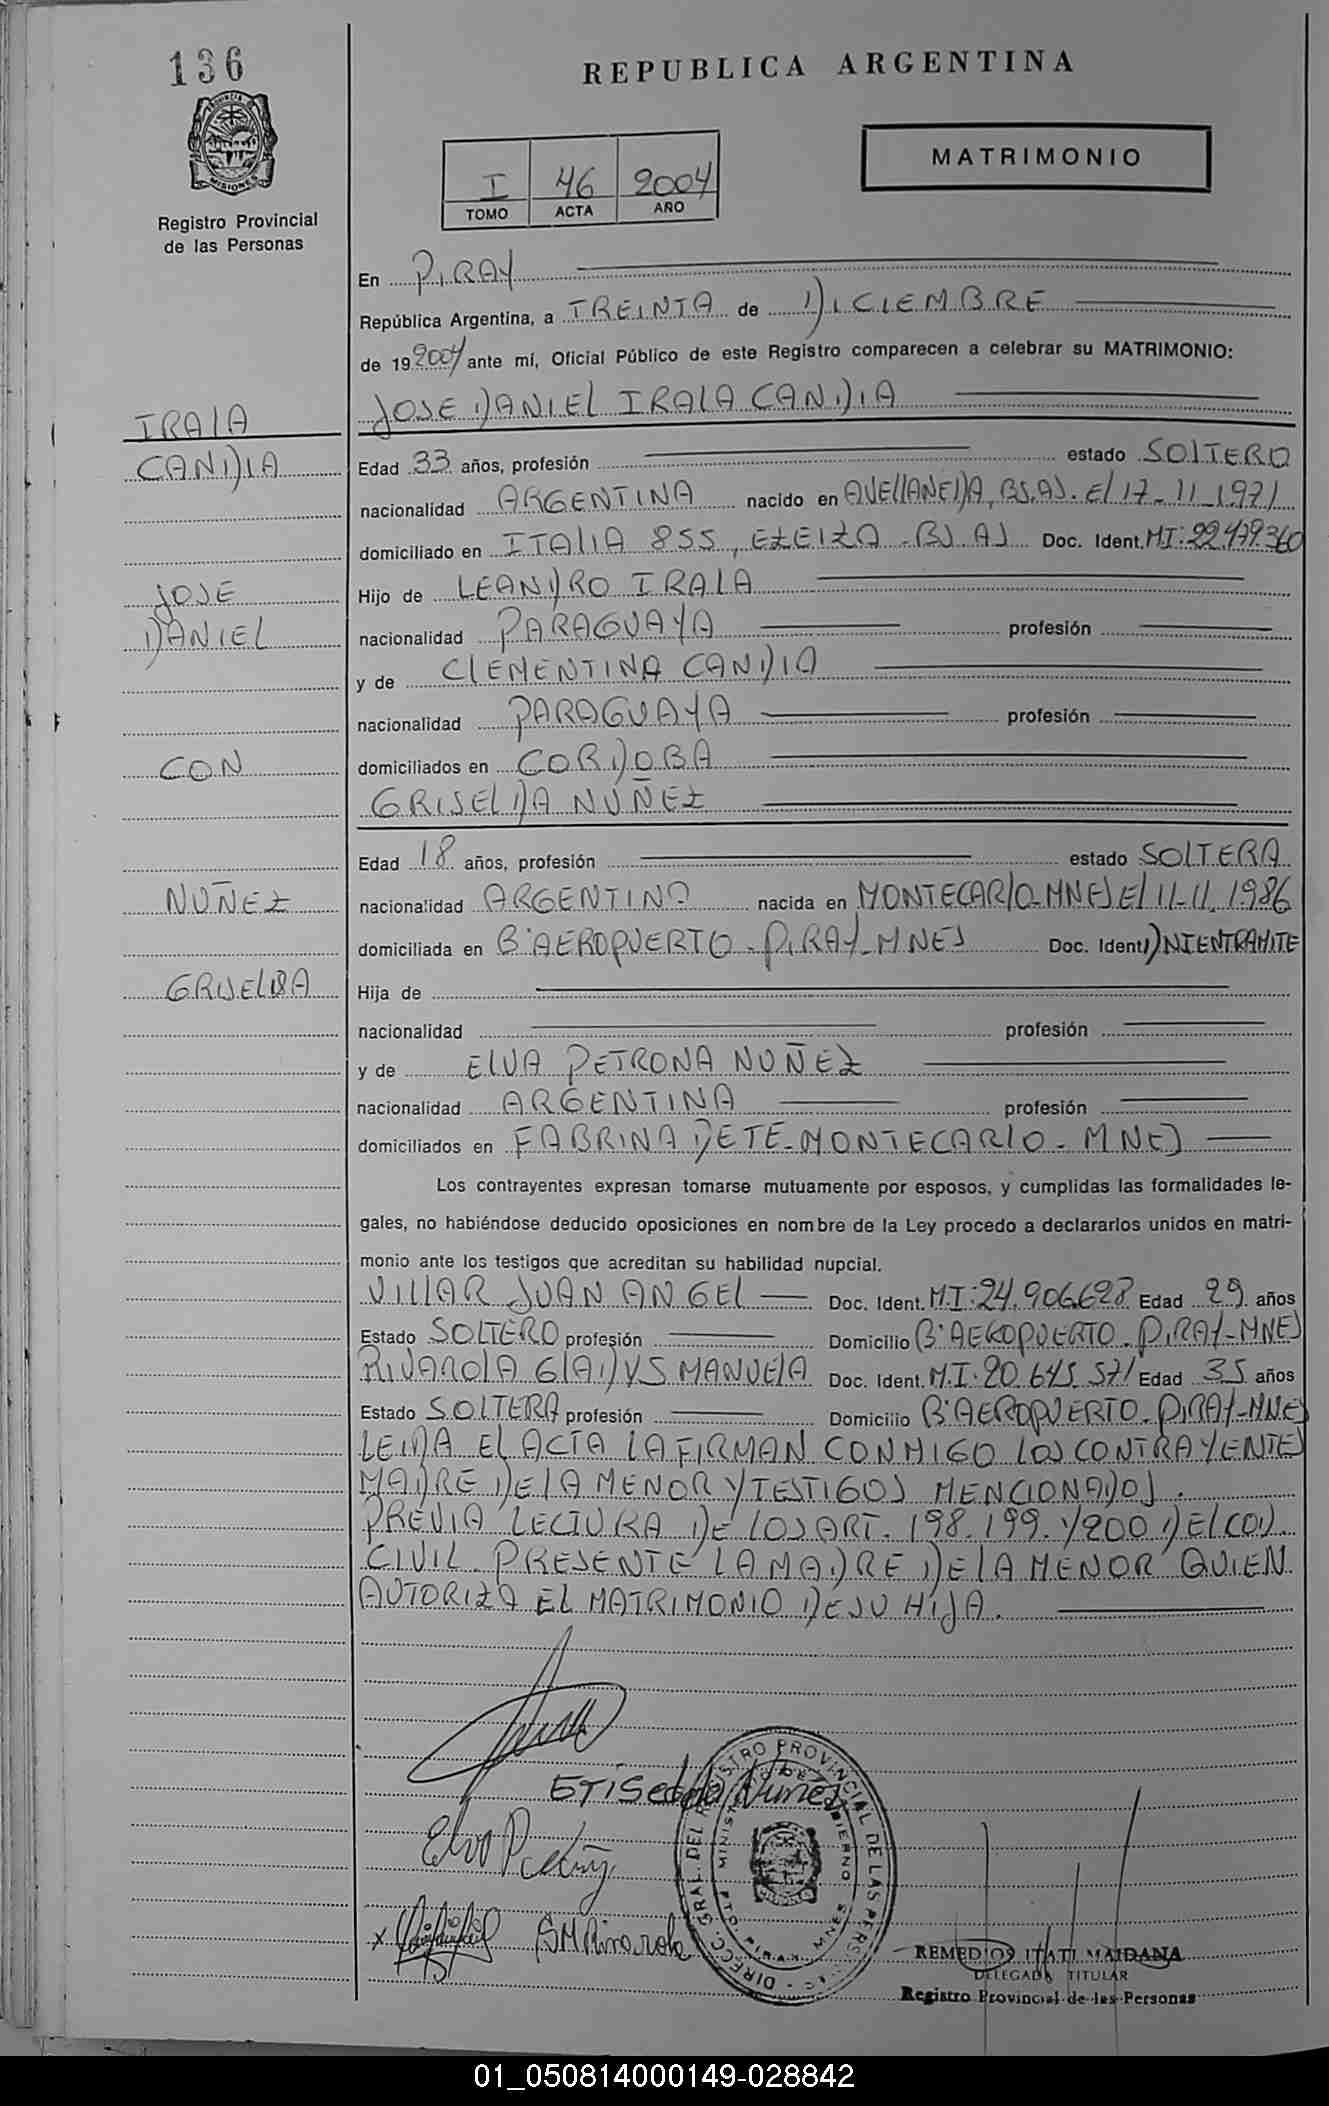 136
REPUBLICA ARGENTINA
PROVINCIA DE
MISIONES
Registro Provincial
de las Personas
I 46 2004
TOMO ACTA AÑO
MATRIMONIO
En PIRAY
República Argentina, a TREINTA de DICIEMBRE
de 19 2004 ante mí, Oficial Público de este Registro comparecen a celebrar su MATRIMONIO:
JOSE DANIEL IRALA CANDIA
IRALA
CANDIA
Edad 33 años, profesión estado SOLTERO
nacionalidad ARGENTINA nacido en AVELLANEDA, BS.AS. El 17-11-1971
domiciliado en ITALIA 855, EZEIZA - BS AS Doc. Ident. MI: 22.479.360
JOSE
DANIEL
Hijo de LEANDRO IRALA
nacionalidad PARAGUAYA profesión
y de CLEMENTINA CANDIA
nacionalidad PARAGUAYA profesión
CON
domiciliados en CORDOBA
GRISELDA NUÑEZ
Edad 18 años, profesión estado SOLTERA
NUÑEZ
nacionalidad ARGENTINA nacida en MONTECARLO-MNES El 11-11-1986
domiciliada en B° AEROPUERTO - PIRAY - MNES Doc. Ident. DNI EN TRAMITE
GRISELDA
Hija de
nacionalidad profesión
y de ELVA PETRONA NUÑEZ
nacionalidad ARGENTINA profesión
domiciliados en FABRINA DETE - MONTECARLO - MNES
Los contrayentes expresan tomarse mutuamente por esposos, y cumplidas las formalidades le-
gales, no habiéndose deducido oposiciones en nombre de la Ley procedo a declararlos unidos en matri-
monio ante los testigos que acreditan su habilidad nupcial.
VILLAR JUAN ANGEL Doc. Ident. M.I: 24.906.628 Edad 29 años
Estado SOLTERO profesión Domicilio B° AEROPUERTO - PIRAY - MNES
RIVAROLA GLADYS MANUELA Doc. Ident. M.I. 20.645.571 Edad 35 años
Estado SOLTERA profesión Domicilio B° AEROPUERTO - PIRAY - MNES
LEIDA EL ACTA LA FIRMAN CONMIGO LOS CONTRAYENTES
MADRE DE LA MENOR Y TESTIGOS MENCIONADOS.
PREVIA LECTURA DE LOS ART. 198. 199. Y 200 DEL COD.
CIVIL. PRESENTE LA MADRE DE LA MENOR QUIEN
AUTORIZA EL MATRIMONIO DE SU HIJA.
Griselda Nuñez
Elva P
GM Rivarola
DIRECC. GRAL. DEL REGISTRO PROVINCIAL DE LAS PERS
REMEDIOS ITATI MAIDANA
DELEGADA TITULAR
Registro Provincial de las Personas
01_050814000149-028842